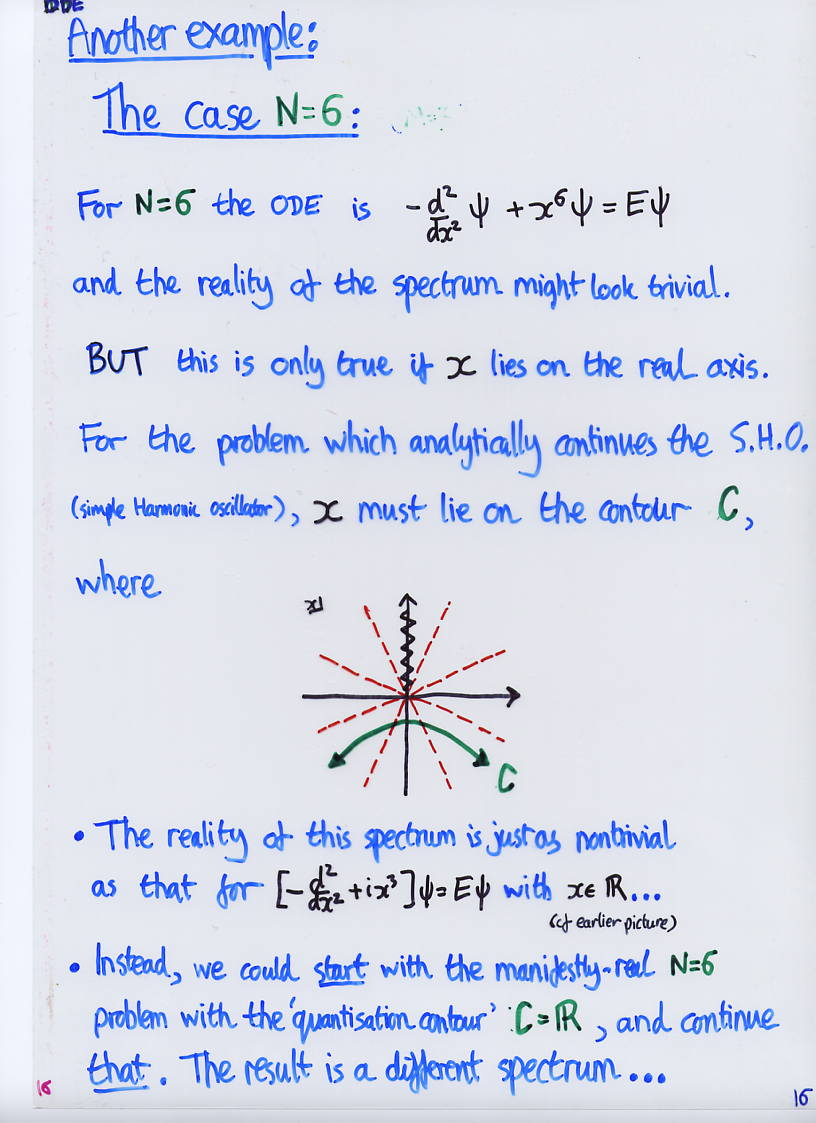 ODE
Another example:
The case N=6:
For N=6 the ODE is -d²/dx² ψ + x⁶ψ = Eψ
and the reality of the spectrum might look trivial.
BUT this is only true if x lies on the real axis.
For the problem which analytically continues the S.H.O.
(simple Harmonic oscillator), x must lie on the contour C,
where
x
C
• The reality of this spectrum is just as nontrivial
as that for [-d²/dx² + ix³]ψ = Eψ with x∈ℝ...
(cf earlier picture)
• Instead, we could start with the manifestly-real N=6
problem with the 'quantisation contour' C=ℝ, and continue
that. The result is a different spectrum...
16
16